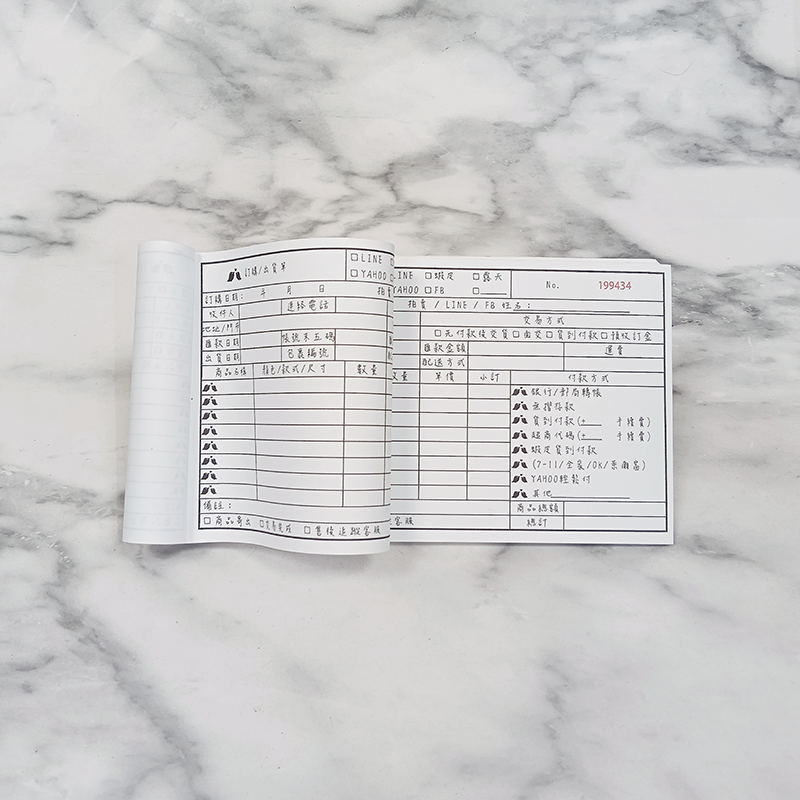 訂購/出貨單
□LINE
□YAHOO
訂購日期： 年 月 日
收件人
連絡電話
地址/門市
匯款日期
帳號末五碼
出貨日期
包裹編號
商品名稱 顏色/款式/尺寸 數量
備註：
□商品寄出 □交易完成 □售後追蹤客服
LINE □蝦皮 □露天
YAHOO □FB □____
No. 199434
拍賣 / LINE / FB 姓名：
交易方式
□先付款後交貨□面交□貨到付款□預收訂金
匯款金額 運費
配送方式
數量 單價 小計 付款方式
銀行/郵局轉帳
無摺存款
貨到付款(+____ 手續費)
超商代碼(+____ 手續費)
蝦皮貨到付款
(7-11/全家/OK/萊爾富)
YAHOO輕鬆付
其他
商品總額
總計
客服